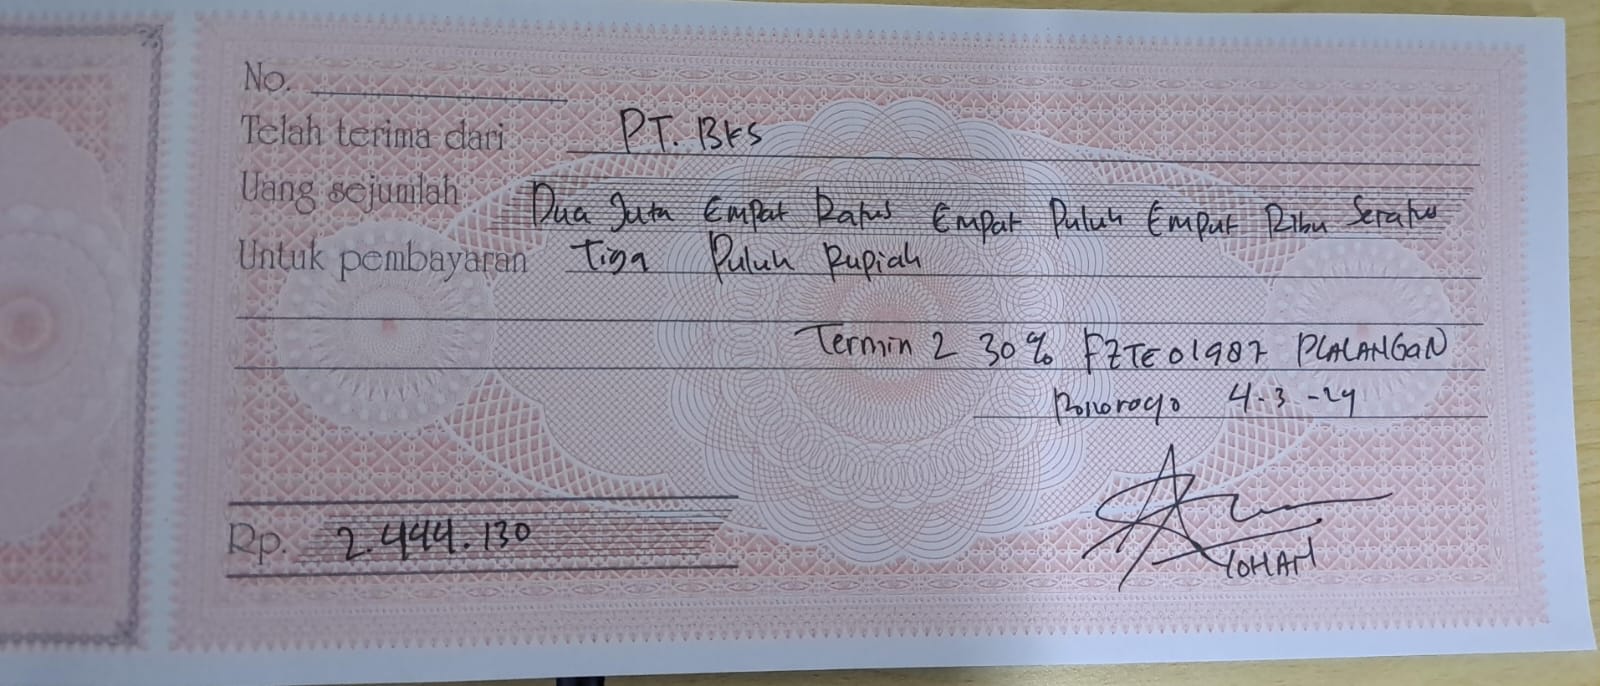 No.
Telah terima dari PT. BKS
Uang sejumlah Dua Juta Empat Ratus Empat Puluh Empat Ribu Seratus
Untuk pembayaran Tiga Puluh Rupiah
Termin 2 30% FZTE01987 PLALANGAN
Ponorogo 4-3-24
Rp. 2.444.130
YOHAN